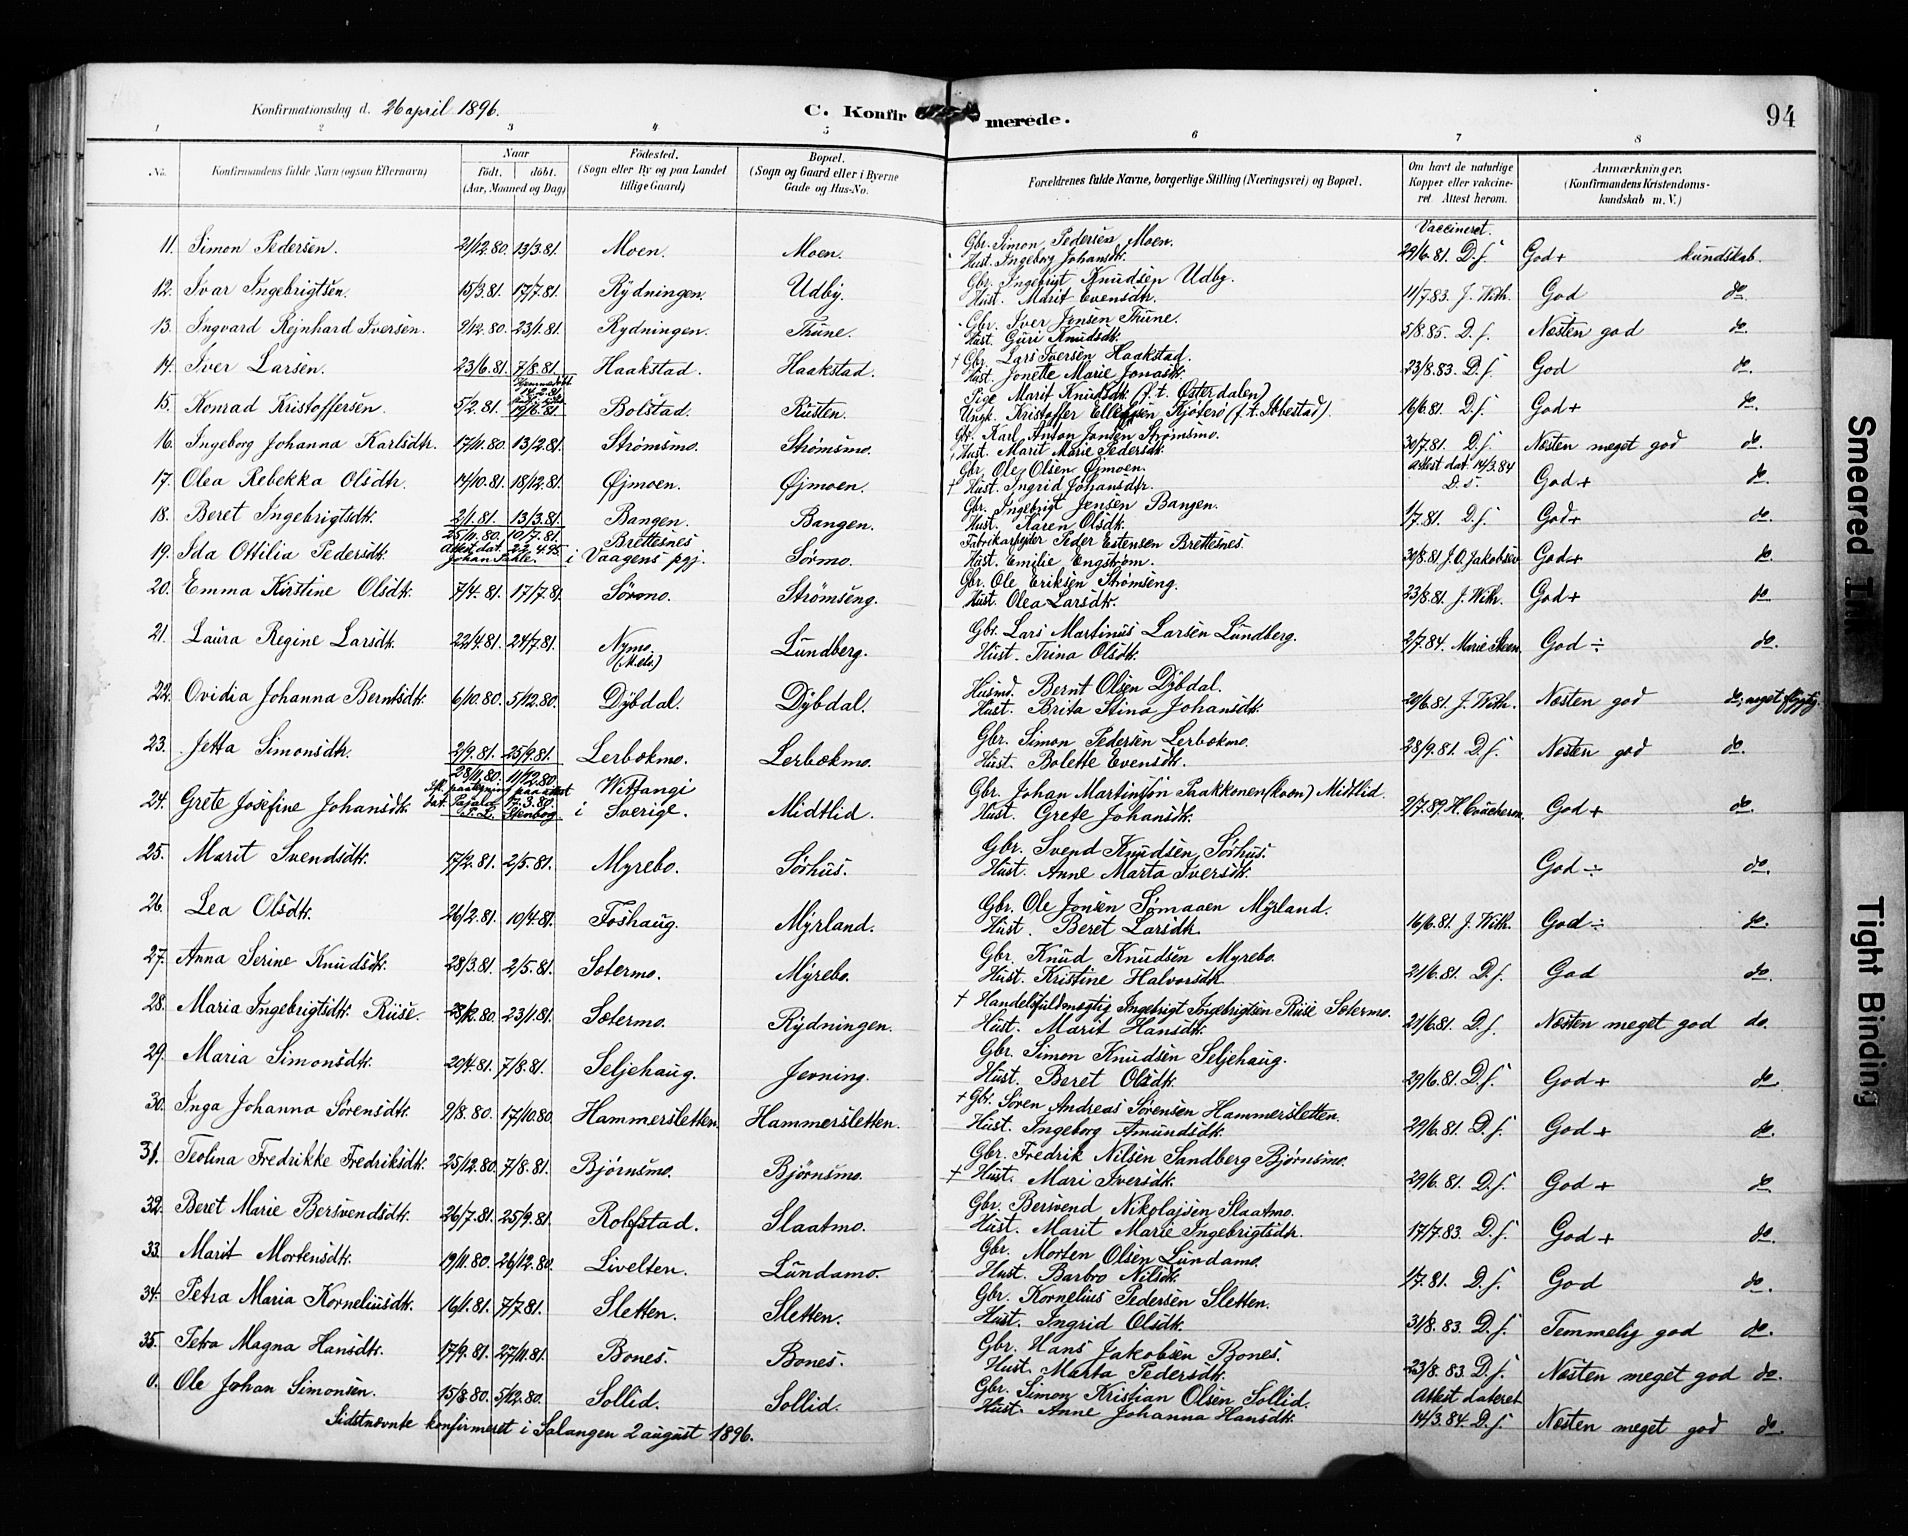 Konfirmationsdag d. 26 april 1896.
C. Konfirmerede.
94
1 2 3 4 5 6 7 8
No. Konfirmandens fulde Navn (ogsaa Efternavn) Naar født. døbt. (Aar, Maaned og Dag) Fødested. (Sogn eller By og paa Landet tillige Gaard) Bopæl. (Sogn og Gaard eller i Byerne Gade og Hus-No. Forældrenes fulde Navne, borgerlige Stilling (Næringsvei) og Bopæl. Om havt de naturlige Kopper eller vakcineret Attest herom. Anmærkninger. (Konfirmandens Kristendomskundskab m. V.)
Vaccineret.
11. Simon Pedersen. 21/12.80. 13/3.81. Moen. Moen. Gbr. Simon Pedersen Moen. 29/6.81. D.f. God+ kundskab.
Hust. Ingeborg Johansdtr.
12. Ivar Ingebrigtsen. 15/3.81. 17/7.81. Rydningen. Udby. Gbr. Ingebrigt Knudsen Udby. 11/7.83. J. With. God do.
Hust. Marit Evensdtr.
13. Ingvard Rejnhard Iversen. 9/12.80. 23/1.81. Rydningen. Thune. Gbr. Iver Jensen Thune. 5/8.85. D.f. Næsten god do.
Hust. Guri Knudsdtr.
14. Iver Larsen. 23/6.81. 7/8.81. Haakstad. Haakstad. + Gbr. Lars Iversen Haakstad. 23/8.83. D.f. God do.
Hust. Jonette Marie Jonasdtr.
Hjemmedøbt 14.2.81
15. Konrad Kristoffersen. 5/2.81. 19/6.81. Bolstad. Rusten. Pige Marit Knudsdtr. (f.t. Østerdalen) 16/6.81. D.f. God+ do.
Ungk. Kristoffer Ellefsen Kjøterø (f.t. Ibbestad).
16. Ingeborg Johanna Karlsdtr. 17/11.80. 13/2.81. Strømsmo. Strømsmo. Gbr. Karl Anton Jensen Strømsmo. 30/7.81. D.f. Næsten meget god do.
Hust. Marit Marie Pedersdtr.
17. Olea Rebekka Olsdtr. 14/10.81. 18/12.81. Øjmoen. Øjmoen. Gbr. Ole Olsen Øjmoen. Attest dat. 14/3.84 D.f. God+ do.
+ Hust. Ingrid Johansdtr.
18. Beret Ingebrigtsdtr. 2/1.81. 13/3.81. Bangen. Bangen. Gbr. Ingebrigt Jensen Bangen. 1/7.81. D.f. God+ do.
Hust. Karen Olsdtr.
19. Ida Ottilia Pedersdtr. 25/11.80. 10/7.81. Attest dat. 22.4.95 Johan Fahle. Brettesnes i Vaagens pgj. Sørmo. Fabrikarbejder Peder Estensen Brettesnes. 30/8.81. J.O. Jakobsen God+ do.
Hust. Emilie Engstrøm.
20. Emma Kirstine Olsdtr. 7/4.81. 17/7.81. Sørmo. Strømseng. Gbr. Ole Eriksen Strømseng. 23/8.81. J. With. God+ do.
Hust. Olea Larsdtr.
21. Laura Regine Larsdtr. 22/4.81. 24/7.81. Nymo. Lundberg. Gbr. Lars Martinus Larsen Lundberg. 2/7.84. Marie Steen. God÷ do.
Hust. Trina Olsdtr.
22. Ovidia Johanna Berntsdtr. 6/10.80. 5/12.80. Dybdal. Dybdal. Husmd. Bernt Olsen Dybdal. 20/6.81. J. With. Næsten god do, meget flygtig.
Hust. Brita Stina Johansdtr.
23. Jetta Simonsdtr. 2/9.81. 25/9.81. Lerbækmo. Lerbækmo. Gbr. Simon Pedersen Lerbækmo. 28/9.81. D.f. Næsten god do.
Hust. Bolette Evensdtr.
24. Grete Josefine Johansdtr. 28/11.80. 11/12.80. Wittangi i Sverige. Midtlid. Gbr. Johan Martinsøn Paakkonen (koen) Midtlid. 9/7.89. God+ do.
Hust. Grete Johansdtr.
25. Marit Svendsdtr. 17/2.81. 2/5.81. Myrebo. Sørhus. Gbr. Svend Knudsen Sørhus. God÷ do.
Hust. Anne Marta Iversdtr.
26. Lea Olsdtr. 26/2.81. 10/4.81. Foshaug. Myrland. Gbr. Ole Jonsen Sømaaen Myrland. 16/6.81. J. With. God÷ do.
Hust. Beret Larsdtr.
27. Anna Serine Knudsdtr. 28/3.81. 2/5.81. Sætermo. Myrebo. Gbr. Knud Knudsen Myrebo. 21/6.81. D.f. God do.
Hust. Kristine Halvorsdtr.
28. Maria Ingebrigtsdtr. Riise. 28/12.80. 23/1.81. Sætermo. Rydningen. + Handelsfuldmægtig Ingebrigt Ingebrigtsen Riise Sætermo. 21/6.81. D.f. Næsten meget god do.
Hust. Marit Hansdtr.
29. Maria Simonsdtr. 20/4.81. 7/8.81. Seljehaug. Jevning. Gbr. Simon Knudsen Seljehaug. 29/6.81. D.f. God+ do.
Hust. Beret Olsdtr.
30. Inga Johanna Sørensdtr. 9/8.80. 17/10.80. Hammersletten. Hammersletten. + Gbr. Søren Andreas Sørensen Hammersletten. 29/6.81. D.f. God+ do.
Hust. Ingeborg Amundsdtr.
31. Teolina Fredrikke Fredriksdtr. 25/12.80. 7/8.81. Bjørnsmo. Bjørnsmo. Gbr. Fredrik Nilsen Sandberg Bjørnsmo. 29/6.81. D.f. God+ do.
+ Hust. Mari Iversdtr.
32. Beret Marie Bersvendsdtr. 26/7.81. 25/9.81. Rolfstad. Slaatmo. Gbr. Bersvend Nikolajsen Slaatmo. 17/7.83. D.f. God+ do.
Hust. Marit Marie Ingebrigtsdtr.
33. Marit Mortensdtr. 19/11.80. 26/12.80. Livelten. Lundamo. Gbr. Morten Olsen Lundamo. 1/7.81. D.f. God do.
Hust. Barbro Nilsdtr.
34. Petra Maria Korneliusdtr. 16/1.81. 7/7.81. Sletten. Sletten. Gbr. Kornelius Pedersen Sletten. 31/8.83. D.f. Temmelig god do.
Hust. Ingrid Olsdtr.
35. Petra Magna Hansdtr. 17/9.81. 27/11.81. Bones. Bones. Gbr. Hans Jakobsen Bones. 23/8.83. D.f. Næsten meget god do.
Hust. Marta Pedersdtr.
0. Ole Johan Simonsen. 15/8.80. 5/12.80. Sollid. Sollid. Gbr. Simon Kristian Olsen Sollid. Attest dateret 14/3.84. D.f. Næsten meget god do.
Hust. Anne Johanna Hansdtr.
Sidstnævnte konfirmeret i Salangen 2 august 1896.
Smeared Ink
Tight Binding